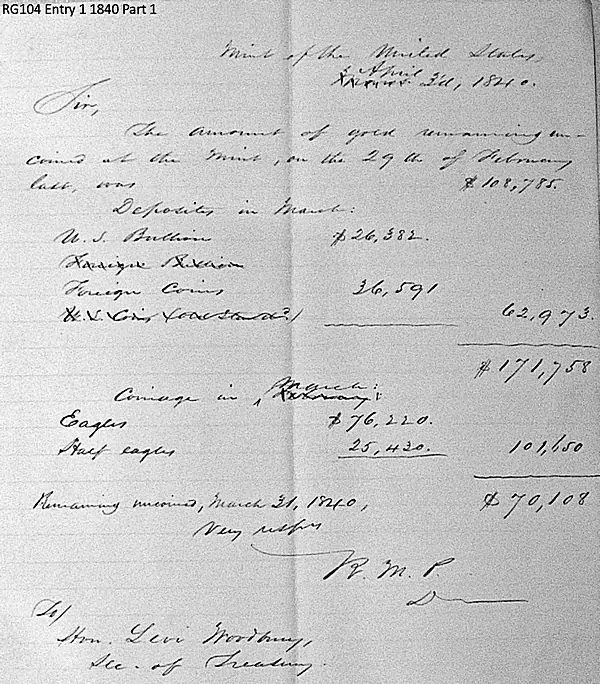 RG104 Entry 1 1840 Part 1
Mint of the United States,
April 3d, 1840.
Sir,
The amount of gold remaining un-
coined at the Mint, on the 29th of February
last, was $108,785.
Deposites in March:
U. S. Bullion $26,382.
Foreign Bullion
Foreign Coins 36,591
U.S. Coins (old standd.) 62,973.
$171,758
Coinage in March:
Eagles $76,220.
Half eagles 25,430. 101,650
Remaining uncoined, March 31, 1840, $70,108
Very respy
R. M. P.
D
To/
Hon. Levi Woodbury,
Sec. of Treasury.